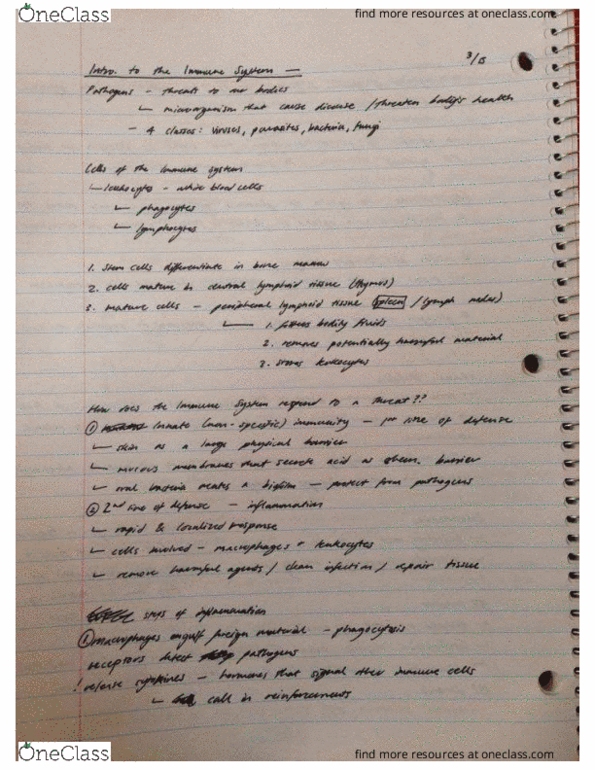 OneClass
find more resources at oneclass.com
3/15
Intro. to the Immune System —
Pathogens - threats to our bodies
↳ microorganism that cause disease / threaten body's health
- 4 classes: viruses, parasites, bacteria, fungi
Cells of the Immune system
↳ leukocytes - white blood cells
↳ phagocytes
↳ lymphocytes
1. Stem cells differentiate in bone marrow
2. cells mature in central lymphoid tissue (thymus)
3. mature cells - peripheral lymphoid tissue (spleen / lymph nodes)
↳ 1. filters bodily fluids
2. removes potentially harmful material
3. stores leukocytes
How does the Immune System respond to a threat??
① Innate (non-specific) immunity - 1st line of defense
↳ skin as a large physical barrier
↳ mucous membranes that secrete acid as chem. barrier
↳ oral bacteria creates a biofilm - protect from pathogens
② 2nd line of defense - inflammation
↳ rapid & localized response
↳ cells involved - macrophages + leukocytes
↳ remove harmful agents / clean infection / repair tissue
steps of inflammation
① macrophages engulf foreign material - phagocytosis
receptors detect pathogens
! release cytokines - hormones that signal other immune cells
↳ call in reinforcements
OneClass
find more resources at oneclass.com